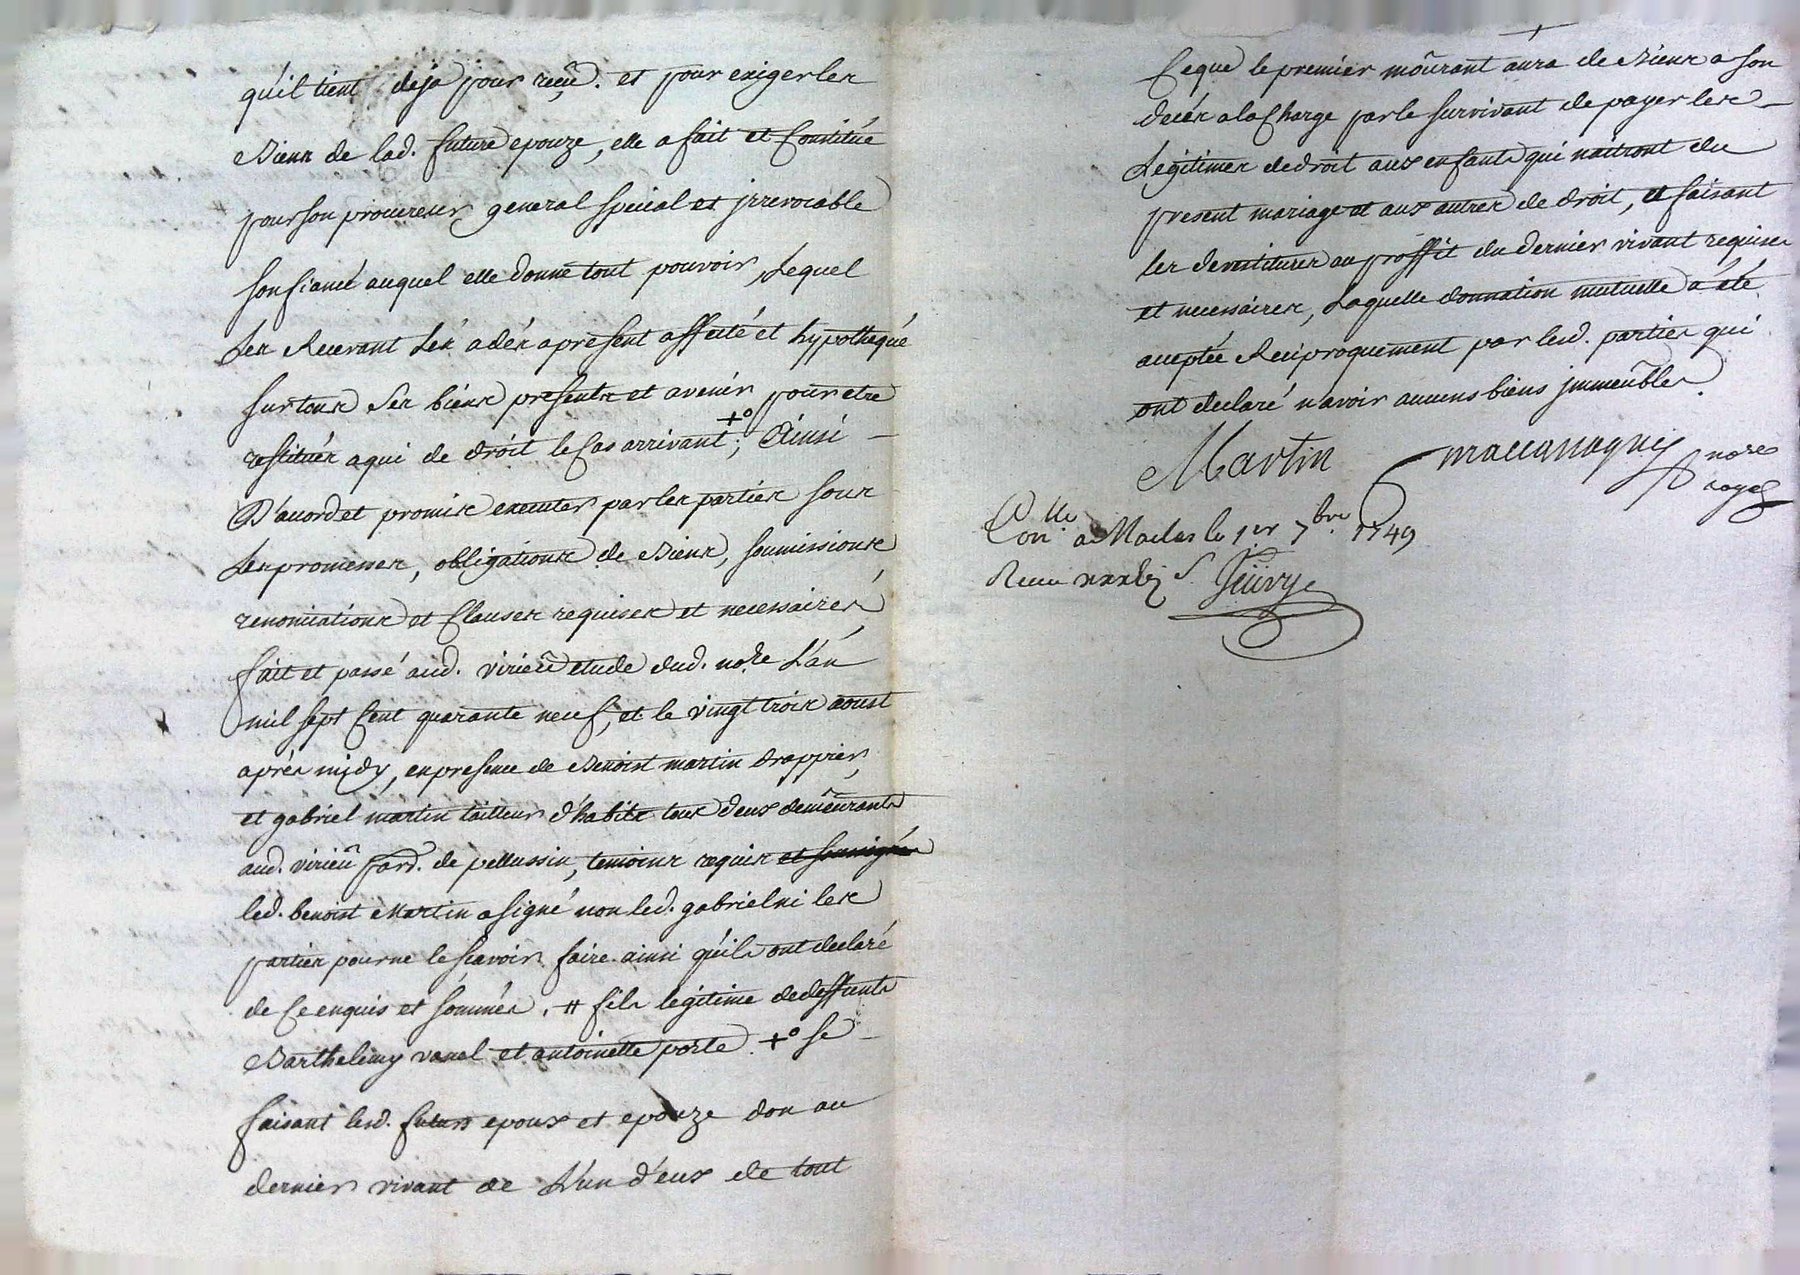 qu'il tient deja pour reçû. et pour exiger les
Biens de lad. future epouze, elle a fait et Constitué
pour son procureur general special et jrrevocable
son fiancé auquel elle donne tout pouvoir, Lequel
Les Recevant Les a dés apresent affecté et hypothequé
sur tous Ses biens presents et avenir pour etre
restitués a qui de droit le Cas arrivant; +° Ainsi
D'acord et promis executer par les parties sous
Les promesses, obligations de Biens, soumissions
renonciations et Clauses requises et necessaires,
fait et passé aud. virieû etude dud. nore L'an
mil sept Cent quarante neuf, et le vingt trois aoust
aprés mjdy, en presence de Benoist martin drappier,
et gabriel martin tailleur d'habits tous deux demeurants
aud. virieû parr. de pellussin, temoins requis et soussignés
led. benoist Martin a signé non led. gabriel ni les
parties pour ne le sçavoir faire ainsi qu'ils ont declaré
de Ce enquis et sommés. # fils legitime de deffunts
Barthelemy vanel et antoinette porte. +° se
faisant lesd. futurs epoux et epouze don au
dernier vivant de L'un d'eux de tout
Ceque le premier moûrant aura de Biens a son
decés a la Charge par le survivant de payer les
Legitimes de droit aux enfants qui naitront du
present mariage et aux autres de droit, et faisant
les devestitures au proffit du dernier vivant requises
et necessaires, Laquelle donnation mutuelle a été
aceptée Reciproquement par lesd. parties qui
ont declaré n'avoir aucuns biens jmmeûbles.
Martin
nore
royal
Conlle a Maclas le 1er 7bre 1749